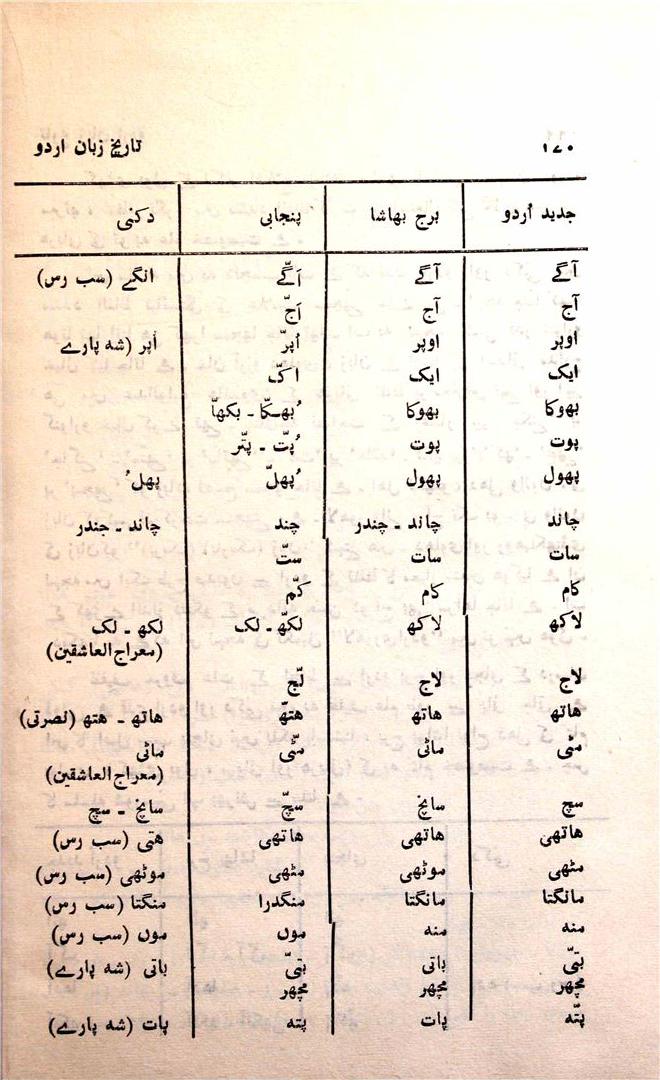 ۱۷۰ تاریخ زبان اردو
جدید اُردو برج بھاشا پنجابی دکنی
آگے آگے اَگّے انگے (سب رس)
آج آج اَجّ
اوپر اوپر اُپّر اُپر (شہ پارے
ایک ایک اکّ
بھوکا بھوکا بُھکّا ۔ بکھاّ
پوت پوت پُتّ ۔ پتّر
پھول پھول پُھلّ پھلُ
چاند چاند ۔ چندر چند چاند ۔ چندر
سات سات ستّ
کام کام کمّ
لاکھ لاکھ لکھّ ۔ لک لکھ ۔ لک
(معراج العاشقین)
لاج لاج لّج
ہاتھ ہاتھ ہتھّ ہاتھ ۔ ہتھ (نصرتی)
مٹی ماٹی مٹّی ماٹی
(معراج العاشقین)
سچ سانچ سچّ سانچ ۔ سچ
ہاتھی ہاتھی ہاتھی ہتی (سب رس)
مٹھی موٹھی مٹھی موٹھی (سب رس)
مانگتا مانگتا منگدرا منگتا (سب رس)
منہ منہ موں موں (سب رس)
بتیّ باتی بتیّ باتی (شہ پارے)
مچھر مچھر مچھر
پتّہ پات پتہ پات (شہ پارے)